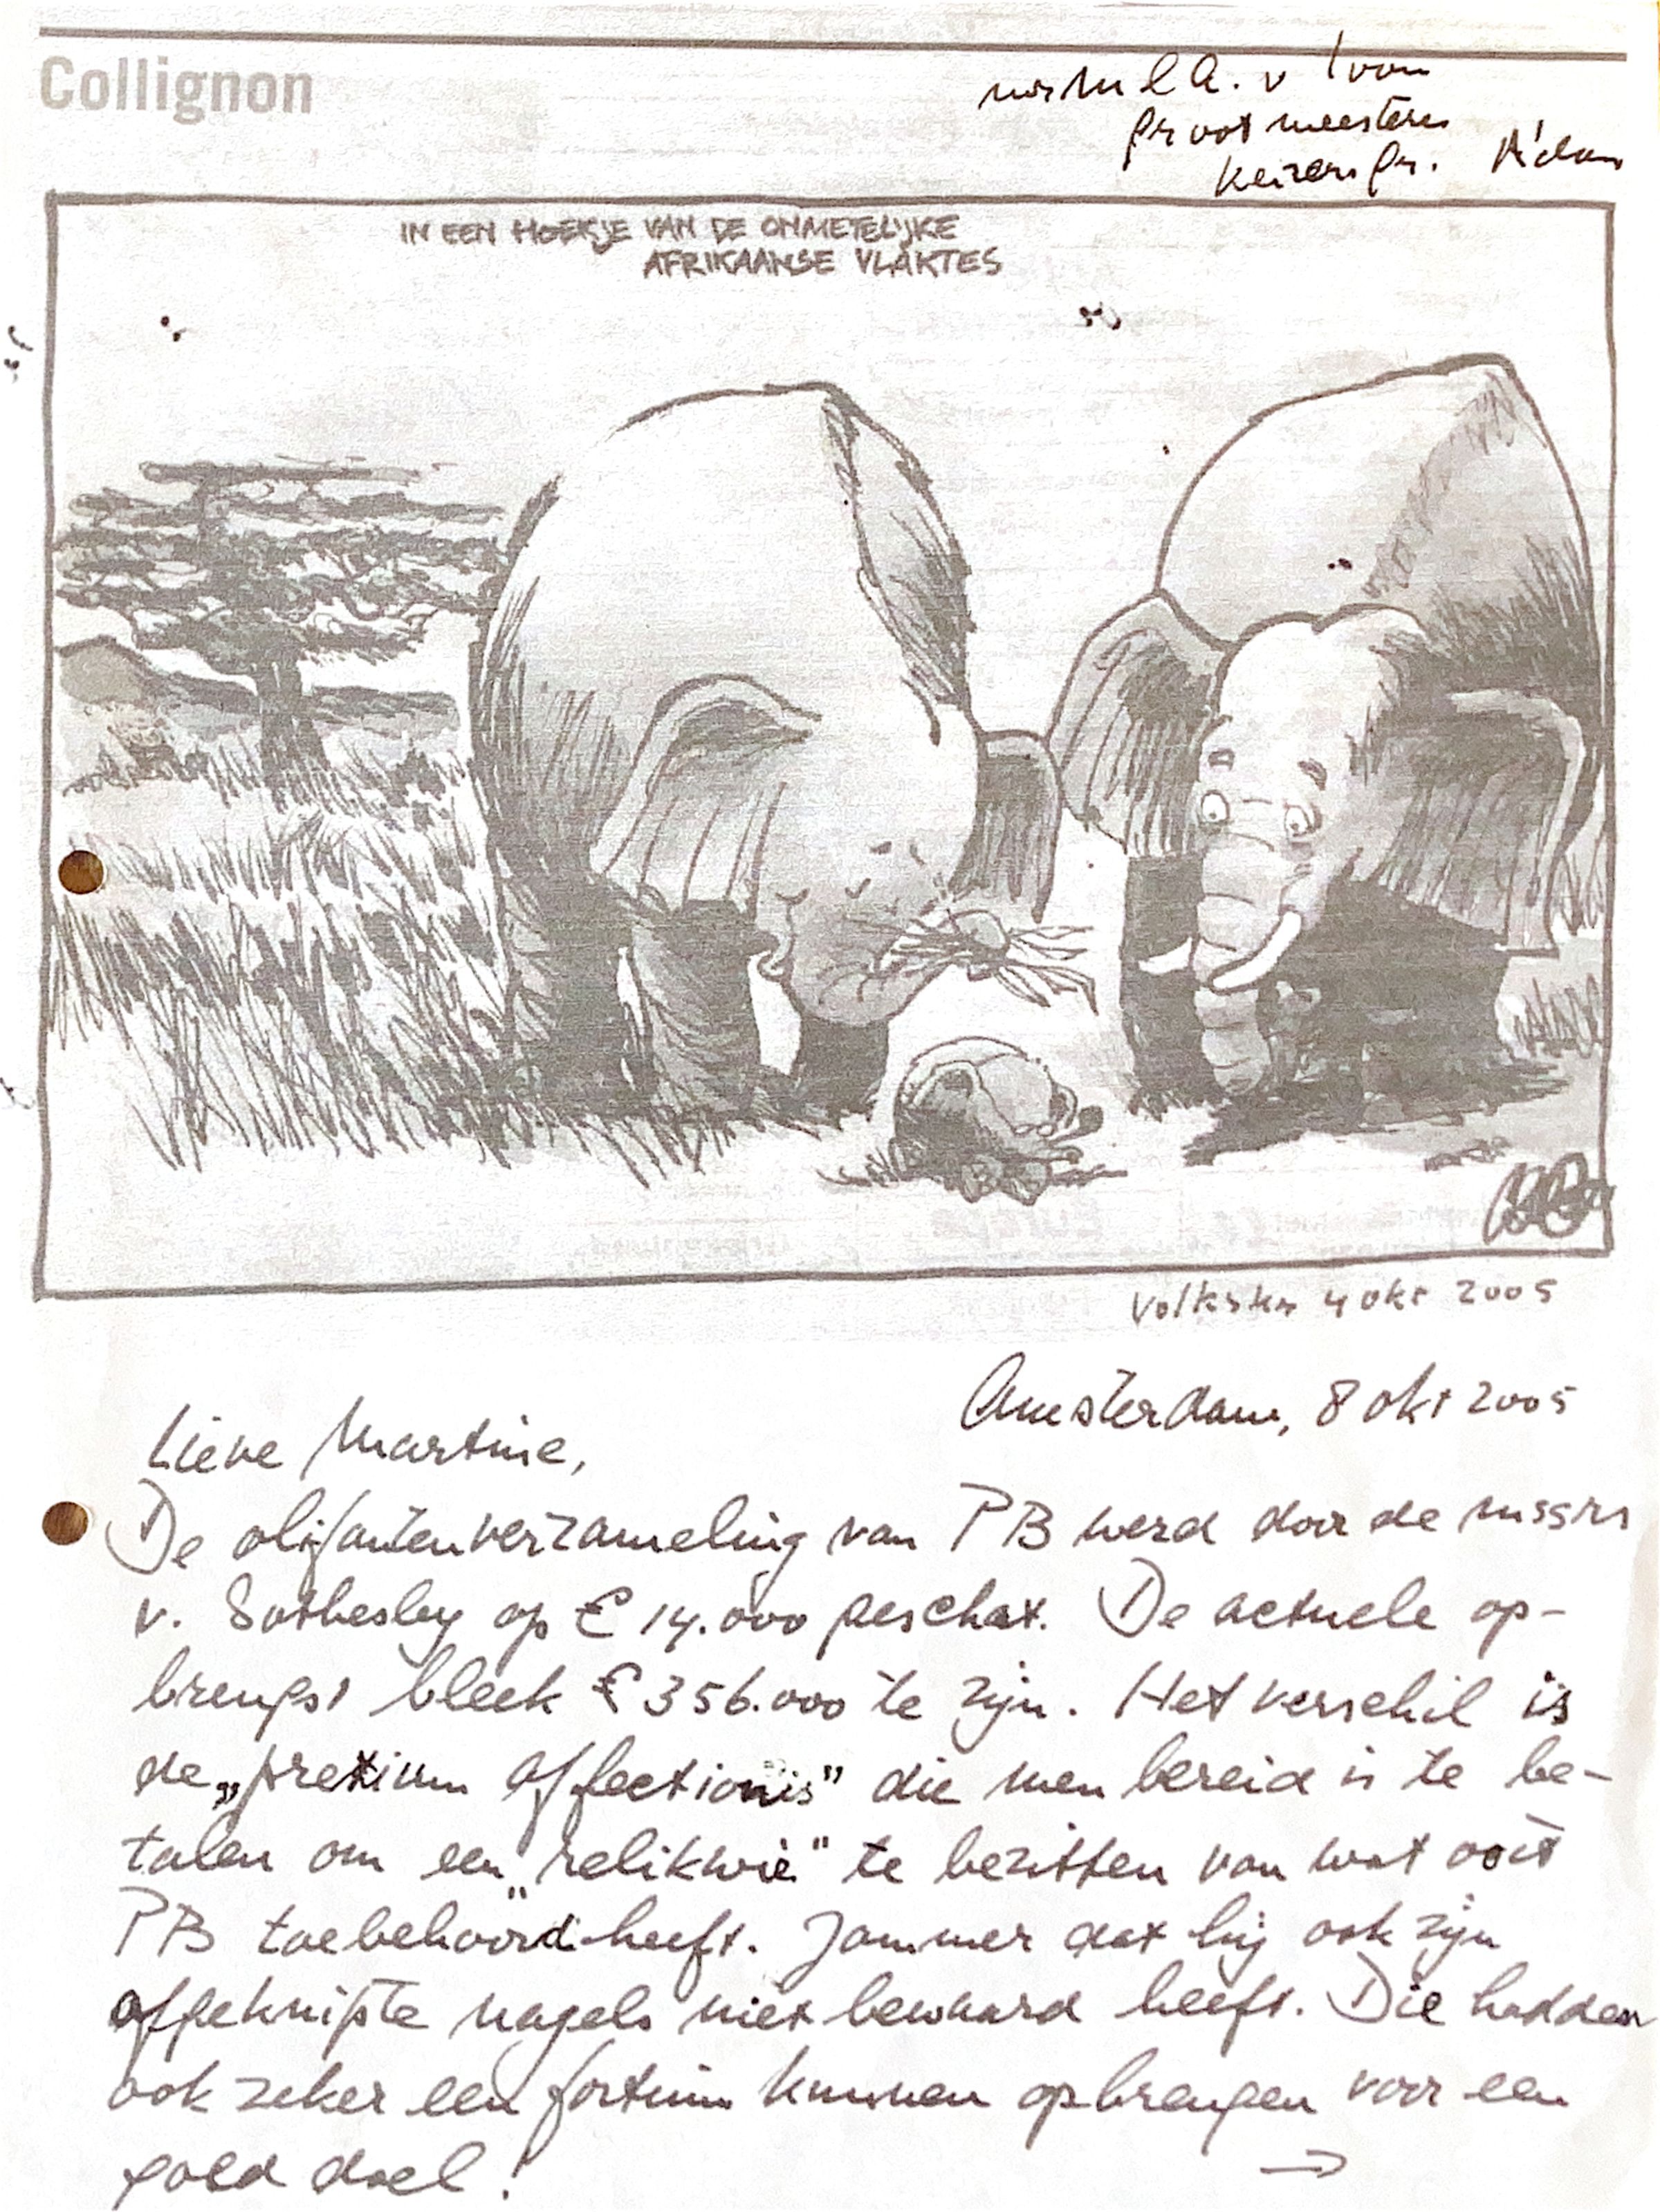 Collignon
grootmeesteres
keizersgr. A'dam
IN EEN HOEKJE VAN DE ONMETELIJKE
AFRIKAANSE VLAKTES
Volkskr 4 okt 2005
Amsterdam, 8 okt 2005
Lieve Martine,
De olifantenverzameling van PB werd door de
v. Sothesby op € 14.000 geschat. De actuele op-
brengst bleek € 356.000 te zijn. Het verschil is
de „pretium affectionis" die men bereid is te be-
talen om een „relikwie" te bezitten van wat ooit
PB toebehoord heeft. Jammer dat hij ook zijn
afgeknipte nagels niet bewaard heeft. Die hadden
ook zeker een fortuin kunnen opbrengen voor een
goed doel!